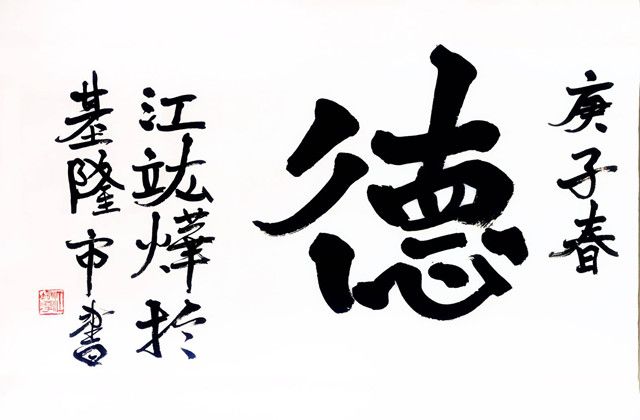 庚子春
德
江竑燁於
基隆市書